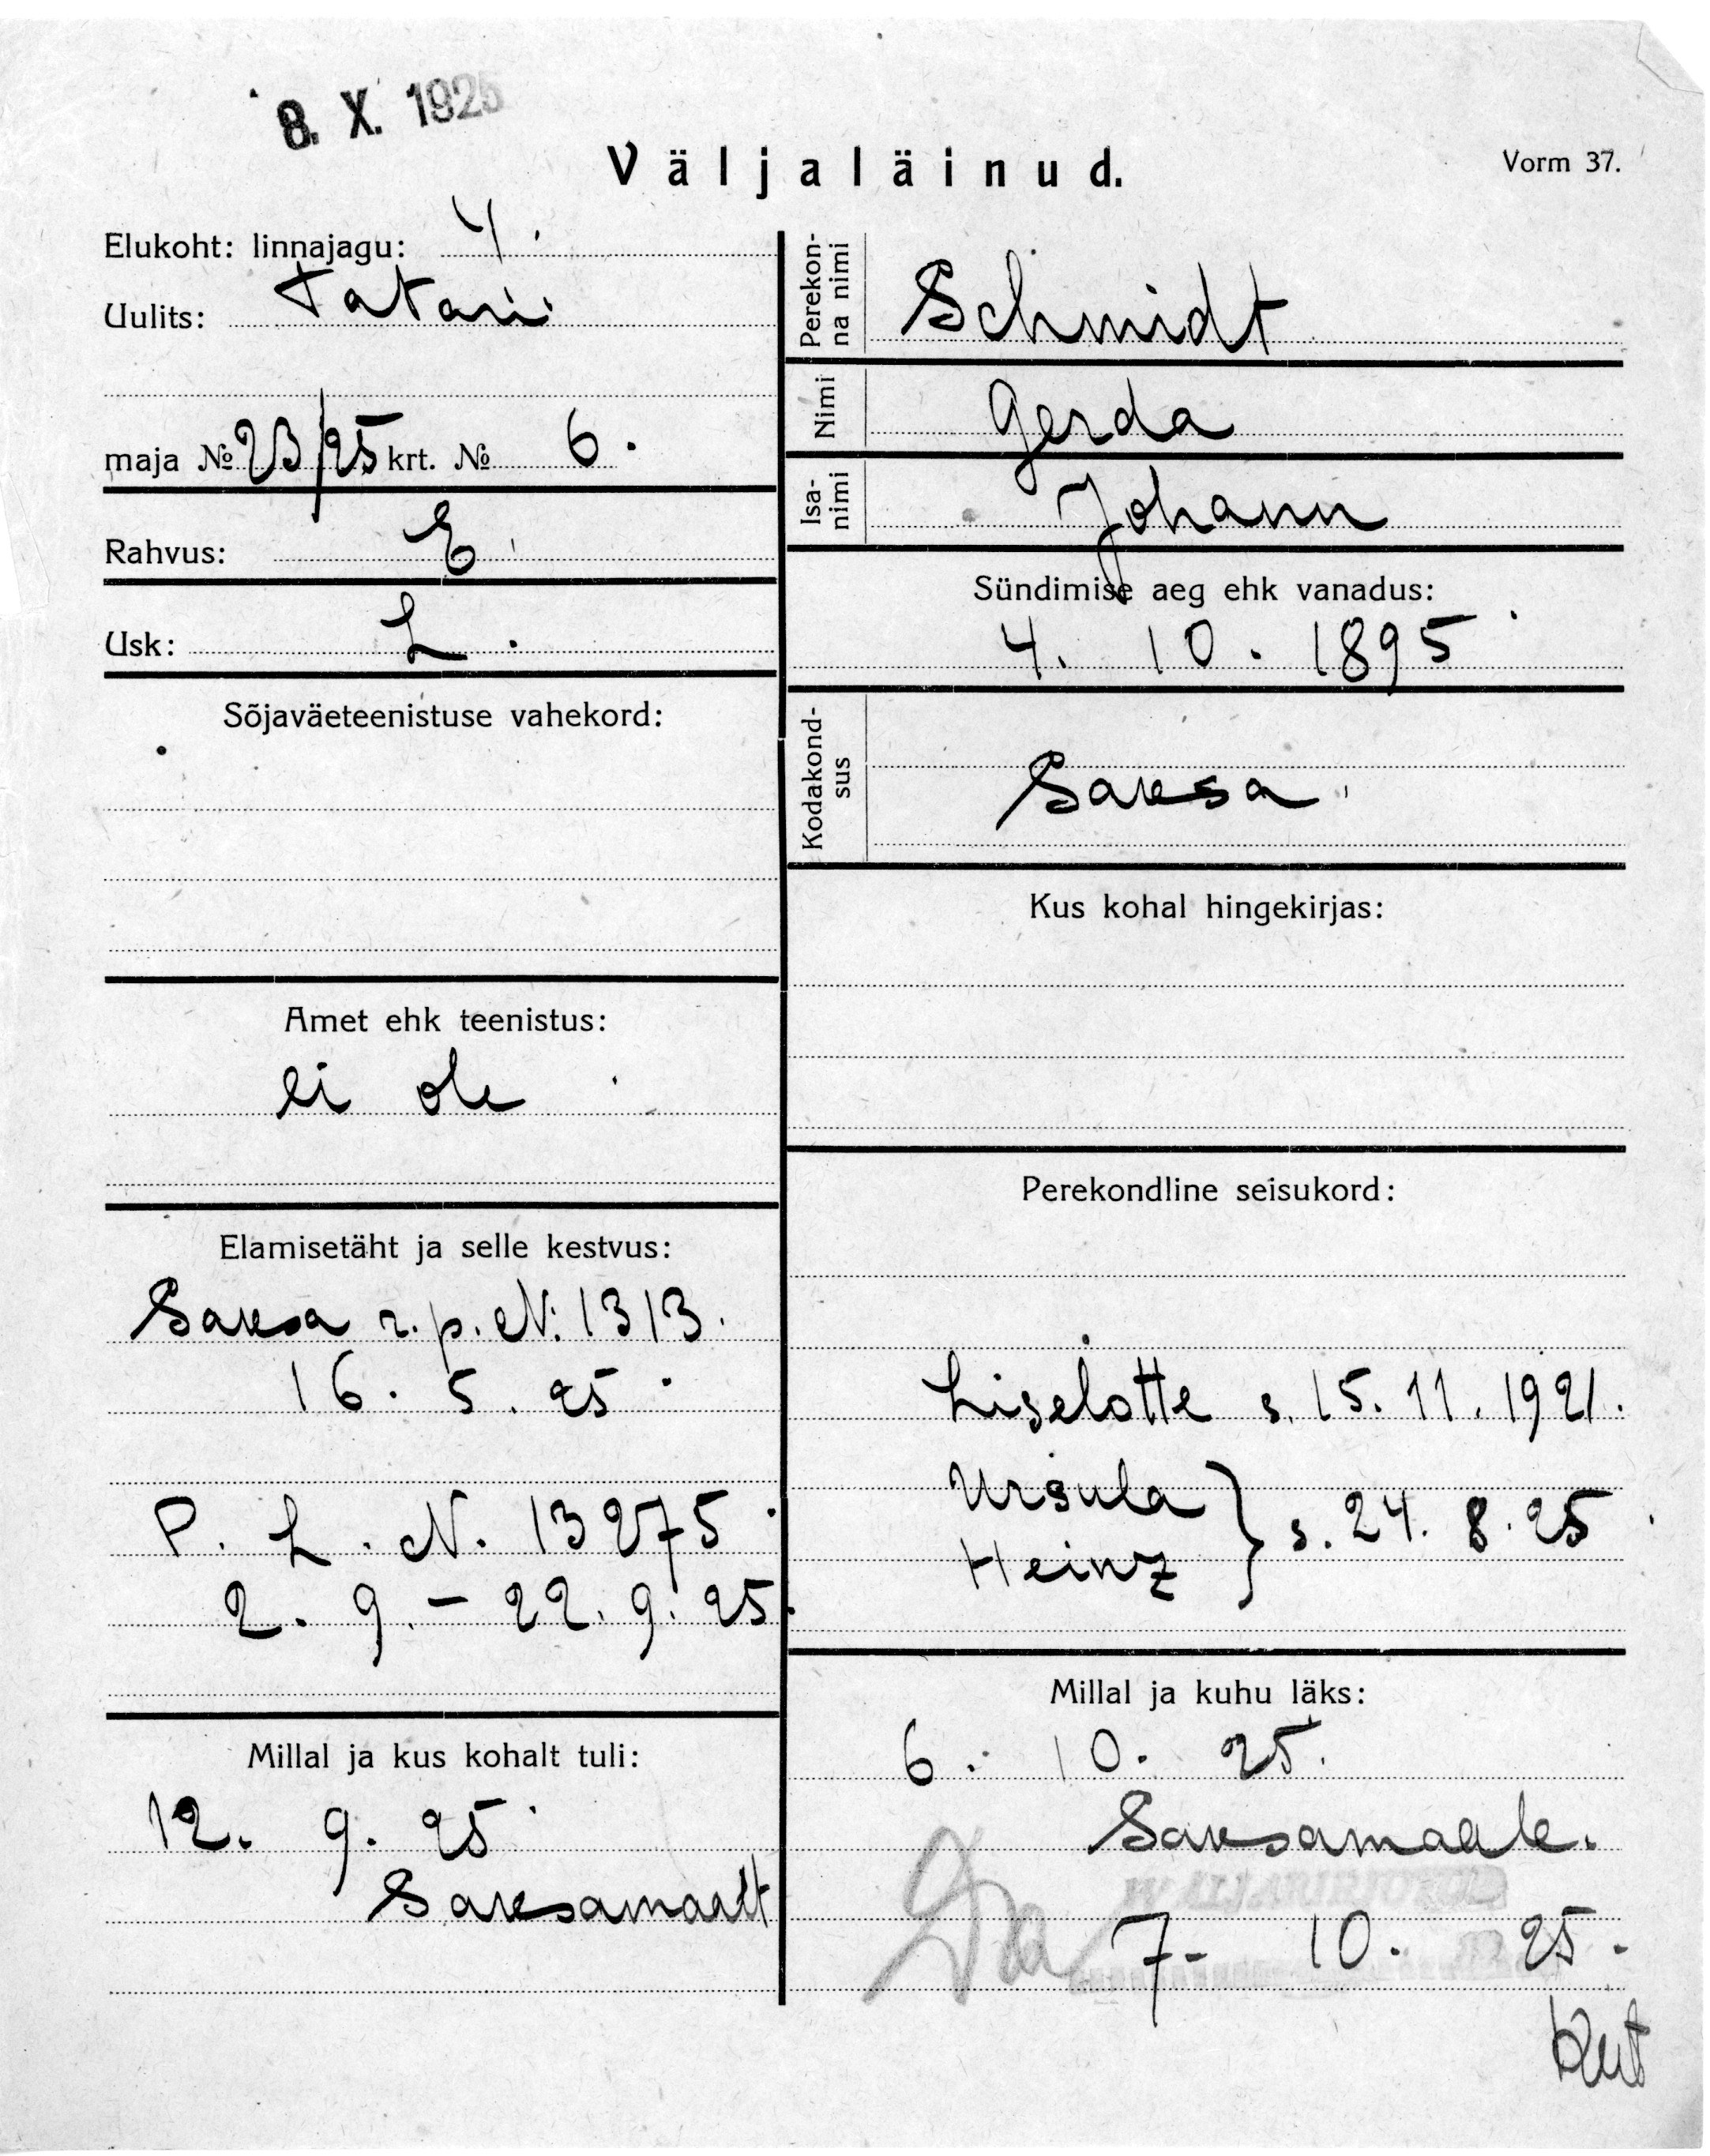 8. X. 1925
Väljaläinud.
Vorm 37.
Elukoht: linnajagu: 4.
Uulits: Tatari
maja № 23/25 krt. № 6.
Rahvus: E
Usk: L.
Sõjaväeteenistuse vahekord:
Amet ehk teenistus:
ei ole
Elamisetäht ja selle kestvus:
Saksa r.p. N: 1313.
16. 5. 25.
P. L. N. 13275.
2. 9. – 22. 9. 25.
Millal ja kus kohalt tuli:
12. 9. 25.
Saksamaalt
Perekon-
na nimi
Schmidt
Nimi
Gerda
Isa-
nimi
Johann
Sündimise aeg ehk vanadus:
4. 10. 1895
Kodakond-
sus
Saksa.
Kus kohal hingekirjas:
Perekondline seisukord:
Liselotte s. 15. 11. 1921.
Ursula
Heinz } s. 24. 8. 25.
Millal ja kuhu läks:
6. 10. 25.
Saksamaale.
7- 10. 25.